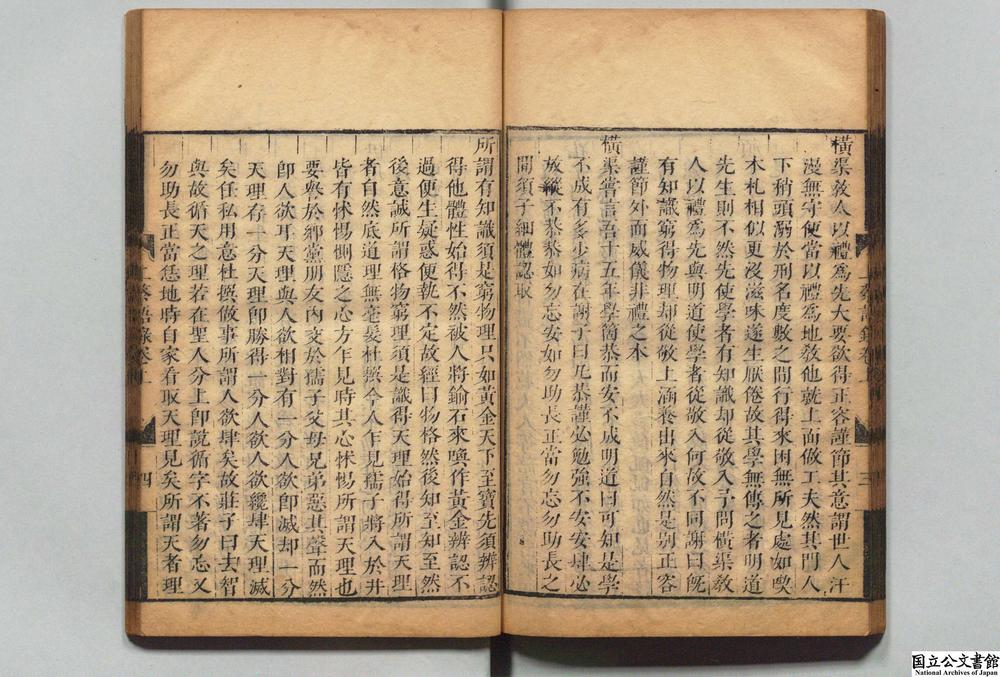 橫渠敎人以禮爲先大要欲得正容謹節其意謂世人汗
漫無守便當以禮爲地敎他就上面做工夫然其門人
下稍頭溺於刑名度數之間行得來困無所見處如喫
木札相似更沒滋味遂生厭倦故其學無傳之者明道
先生則不然先使學者有知識却從敬入予問橫渠敎
人以禮爲先與明道使學者從敬入何故不同謝曰旣
有知識窮得物理却從敬上涵養出來自然是別正容
謹節外面威儀非禮之本
橫渠嘗言吾十五年學箇恭而安不成明道曰可知是學
不成有多少病在謝子曰凡恭謹必勉強不安安肆必
放縱不恭恭如勿忘安如勿助長正當勿忘勿助長之
間須子細體認取
所謂有知識須是窮物理只如黃金天下至寶先須辨認
得他體性始得不然被人將鍮石來喚作黃金辨認不
過便生疑惑便執不定故經曰物格然後知至知至然
後意誠所謂格物窮理須是識得天理始得所謂天理
者自然底道理無毫髮杜撰今人乍見孺子將入於井
皆有怵惕惻隱之心方乍見時其心怵惕所謂天理也
要譽於鄉黨朋友內交於孺子父母兄弟惡其聲而然
卽人欲耳天理與人欲相對有一分人欲卽滅却一分
天理存一分天理卽勝得一分人欲人欲纔肆天理滅
矣任私用意杜撰做事所謂人欲肆矣故莊子曰去智
與故循天之理若在聖人分上卽說循字不著勿忘又
勿助長正當恁地時自家看取天理見矣所謂天者理
上蔡語錄卷上
三
上蔡語錄卷上
四
国立公文書館
National Archives of Japan